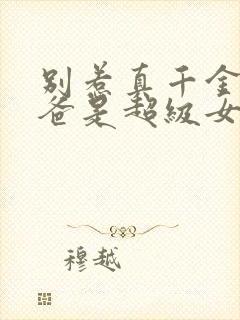 别惹真千金
爸是超级女
穆越